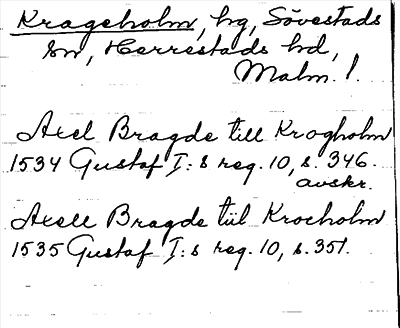 Krageholm, hg, Sövestads
sn, Herrestads hd,
Malm. l.
Axel Bragde till Krogholm
1534 Gustaf I:s reg. 10, s. 346.
avskr.
Axell Bragde tiil Krocholm
1535 Gustaf I:s reg. 10, s. 351.